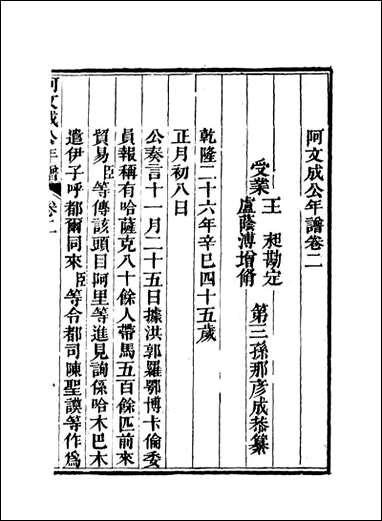 阿文成公年譜卷二
受業王昶勘定
盧蔭溥增脩
第三孫那彥成恭纂
乾隆二十六年辛巳四十五歲
正月初八日
公奏言十一月二十五日據洪郭羅鄂博卡倫委
員報稱有哈薩克八十餘人帶馬五百餘匹前來
貿易臣等傳該頭目阿里等進見詢係哈木巴木
遣伊子呼都爾同來臣等令都司陳聖謨等作為
阿文成公年譜 卷二